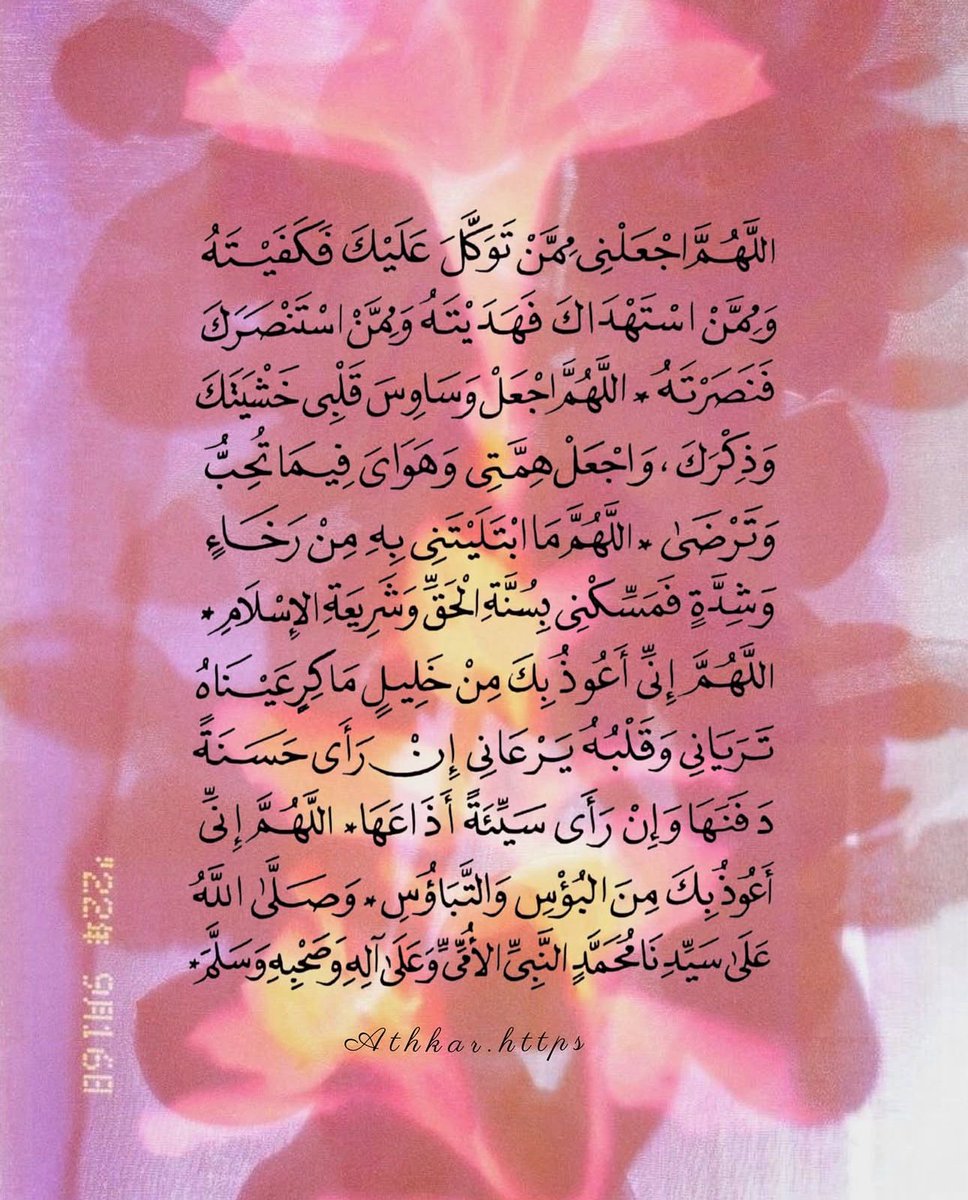 اللَّهُمَّ اجْعَلْنِى مِمَّنْ تَوَكَّلَ عَلَيْكَ فَكَفَيْتَهُ
وَمِمَّنْ اسْتَهْدَاكَ فَهَدَيْتَهُ وَمِمَّنْ اسْتَنْصَرَكَ
فَنَصَرْتَهُ * اللَّهُمَّ اجْعَلْ وَسَاوِسَ قَلْبِى خَشْيَتَكَ
وَذِكْرَكَ ، وَاجْعَلْ هِمَّتِى وَهَوَاىَ فِيمَا تُحِبُّ
وَتَرْضَىٰ * اللَّهُمَّ مَا ابْتَلَيْتَنِى بِهِ مِنْ رَخَاءٍ
وَشِدَّةٍ فَمَسِّكْنِى بِسُنَّةِ الْحَقِّ وَشَرِيعَةِ الإِسْلَامِ *
اللَّهُمَّ إِنِّى أَعُوذُ بِكَ مِنْ خَلِيلٍ مَاكِرٍ عَيْنَاهُ
تَرَيَانِي وَقَلْبُهُ يَرْعَانِي إِنْ رَأَى حَسَنَةً
دَفَنَهَا وَإِنْ رَأَى سَيِّئَةً أَذَاعَهَا * اللَّهُمَّ إِنِّى
أَعُوذُ بِكَ مِنَ الْبُؤْسِ وَالتَّبَاؤُسِ * وَصَلَّىٰ اللَّهُ
عَلَىٰ سَيِّدِنَا مُحَمَّدٍ النَّبِىِّ الأُمِّىِّ وَعَلَىٰ آلِهِ وَصَحْبِهِ وَسَلَّمَ *
Athkar.https